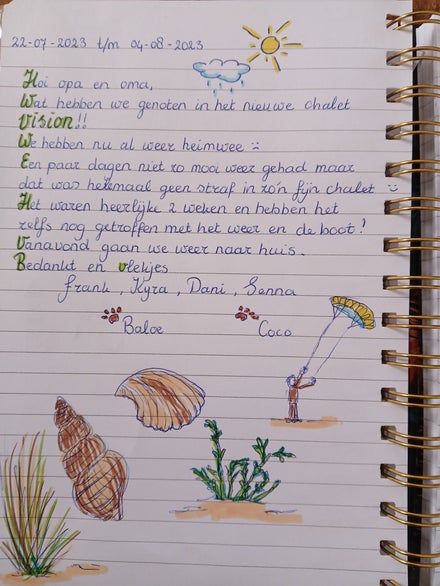 22-07-2023 t/m 04-08-2023
Hoi opa en oma,
Wat hebben we genoten in het nieuwe chalet
Vision!!
We hebben nu al weer heimwee :(
Een paar dagen niet zo mooi weer gehad maar
dat was helemaal geen straf in zo'n fijn chalet :)
Het waren heerlijke 2 weken en hebben het
zelfs nog getroffen met het weer en de boot!
Vanavond gaan we weer naar huis.
Bedankt en vlekjes
Frank, Kyra, Dani, Senna
Baloe Coco